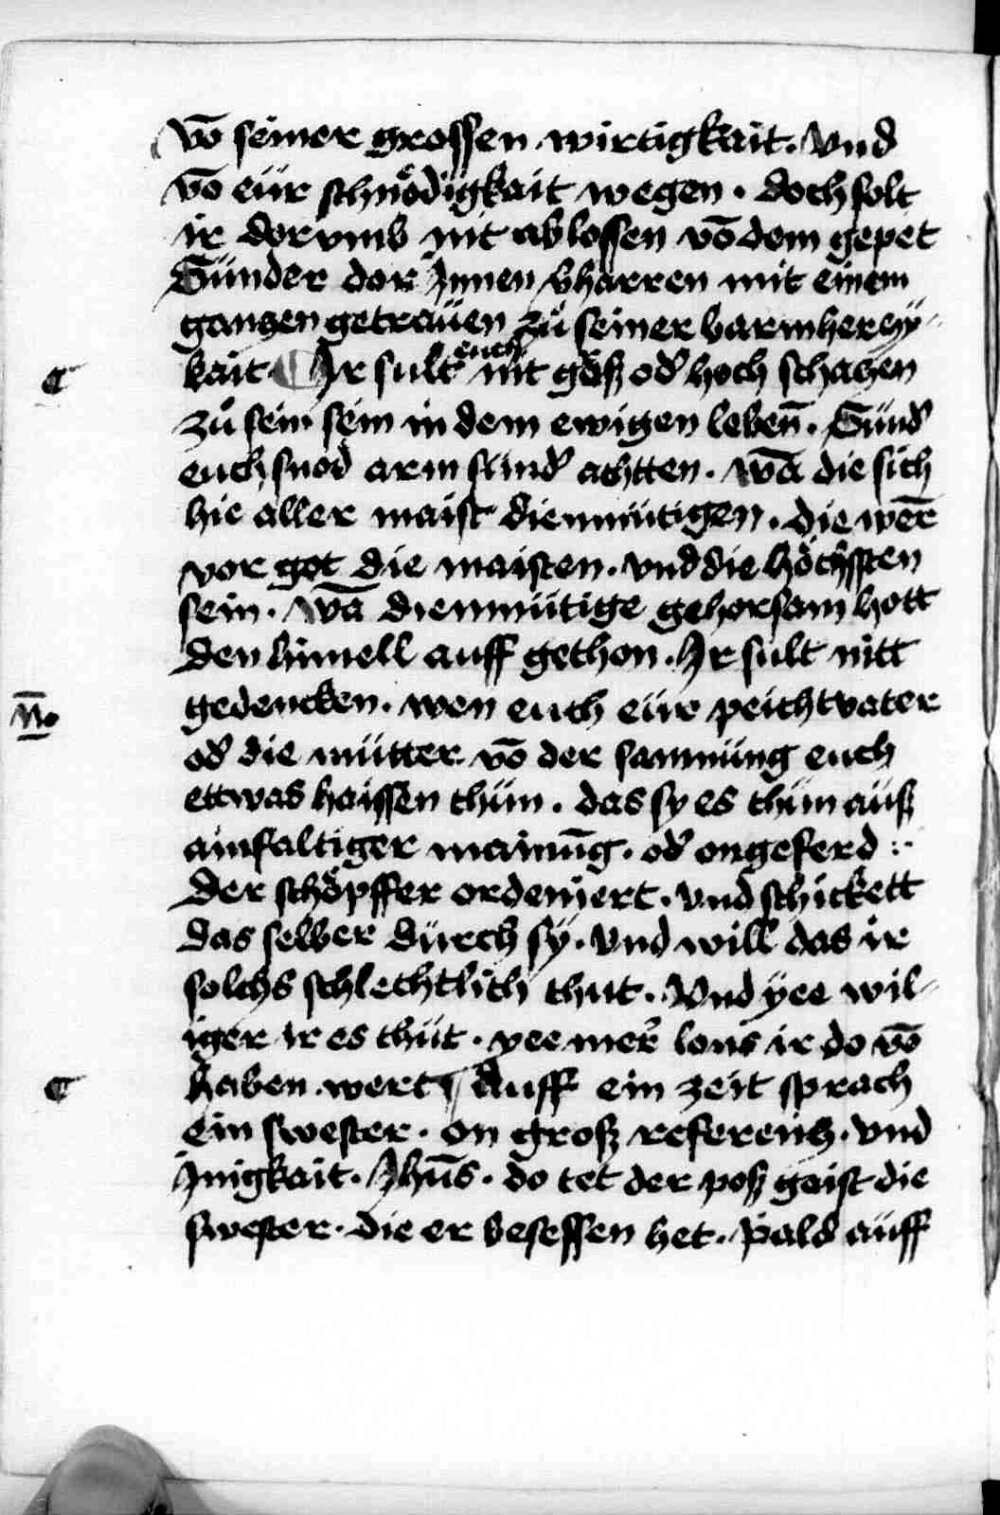 vō seiner grossen wirtigkait. Vnd
vō eür schnödigkait wegen. doch solt
ir dor vmb nit ablossen vō dem gepet
Sünder dor Jnnen vharren mit einem
ganczen getrauen zů seiner barmherczi-
kait. Ir sult euch nit groß od̛ hoch schaczen
zů sein sein in dem ewigen lebenn̄. Sünd̛
euch snod arm sünd̛ achtten. Wā die sich
hie aller maist diemmütigen. die wer̄
vor got die maisten. vnd die höchssten
sein. Wā diemmütige gehorsam hott
den himell auff gethon. Ir sult nitt
gedencken. wen euch eür peichtvater
od̛ die mütter vō der sammung euch
ettwas haissen thün. das sy es thün auß
ainfaltiger mainūg. od̛ ongeferd :·
Der schöpffer ordeniert. vnd schickett
das selber dürch sy. Vnd will das ir
solchs schlechtlich thut. Vnd yee wil-
iger ir es thüt. yee mer lons ir do vō
haben wert Auff ein zeit sprach
ein swester. on groß referencz. vnd
Jnigkait. Jhūs. do tet der poß gaist die
swester. die er besessen het. pald auff